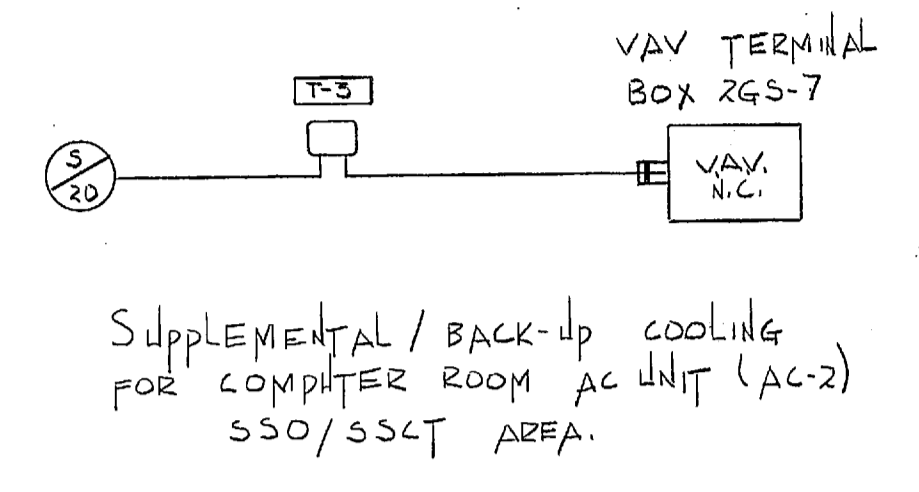 VAV TERMINAL
BOX 2GS-7
T-3
S
20
V.A.V.
N.C.
SUPPLEMENTAL / BACK-UP COOLING
FOR COMPUTER ROOM AC UNIT (AC-2)
SSO/SSCT AREA.